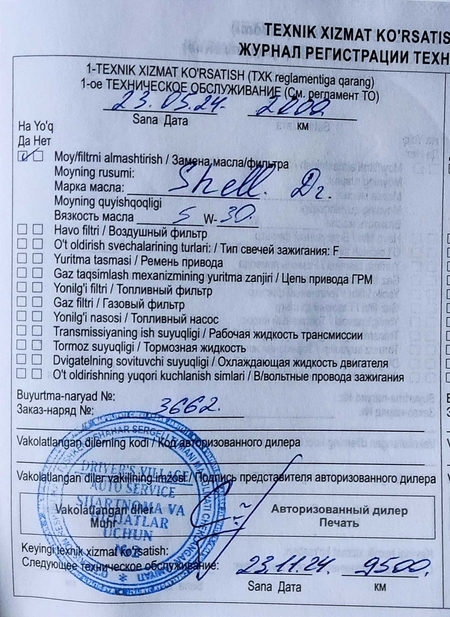 TEXNIK XIZMAT KO'RSATIS
ЖУРНАЛ РЕГИСТРАЦИИ ТЕХН
1-TEXNIK XIZMAT KO'RSATISH (TXK reglamentiga qarang)
1-ое ТЕХНИЧЕСКОЕ ОБСЛУЖИВАНИЕ (См. регламент ТО)
23.05.24. 2000
Sana Дата км
Ha Yo'q
Да Нет
Moy/filtrni almashtirish / Замена масла/фильтра
Moyning rusumi:
Марка масла: Shell.
Moyning quyishqoqligi
Вязкость масла 5 W-30.
Havo filtri / Воздушный фильтр
O't oldirish svechalarining turlari: / Тип свечей зажигания: F
Yuritma tasmasi / Ремень привода
Gaz taqsimlash mexanizmining yuritma zanjiri / Цепь привода ГРМ
Yonilg'i filtri / Топливный фильтр
Gaz filtri / Газовый фильтр
Yonilg'i nasosi / Топливный насос
Transmissiyaning ish suyuqligi / Рабочая жидкость трансмиссии
Tormoz suyuqligi / Тормозная жидкость
Dvigatelning sovituvchi suyuqligi / Охлаждающая жидкость двигателя
O't oldirishning yuqori kuchlanish simlari / В/вольтные провода зажигания
Buyurtma-naryad №:
Заказ-наряд №: 3662.
Vakolatlangan dilerning kodi / Код авторизованного дилера
Vakolatlangan diler vakilining imzosi / Подпись представителя авторизованного дилера
DRIVER'S VILLAGE
AUTO SERVICE
SHARTNOMA VA
HUJJATLAR
UCHUN
№2
Vakolatlangan diler
Muhr
Авторизованный дилер
Печать
Keyingi texnik xizmat ko'rsatish:
Следующее техническое обслуживание: 23.11.24. 9500.
Sana Дата км